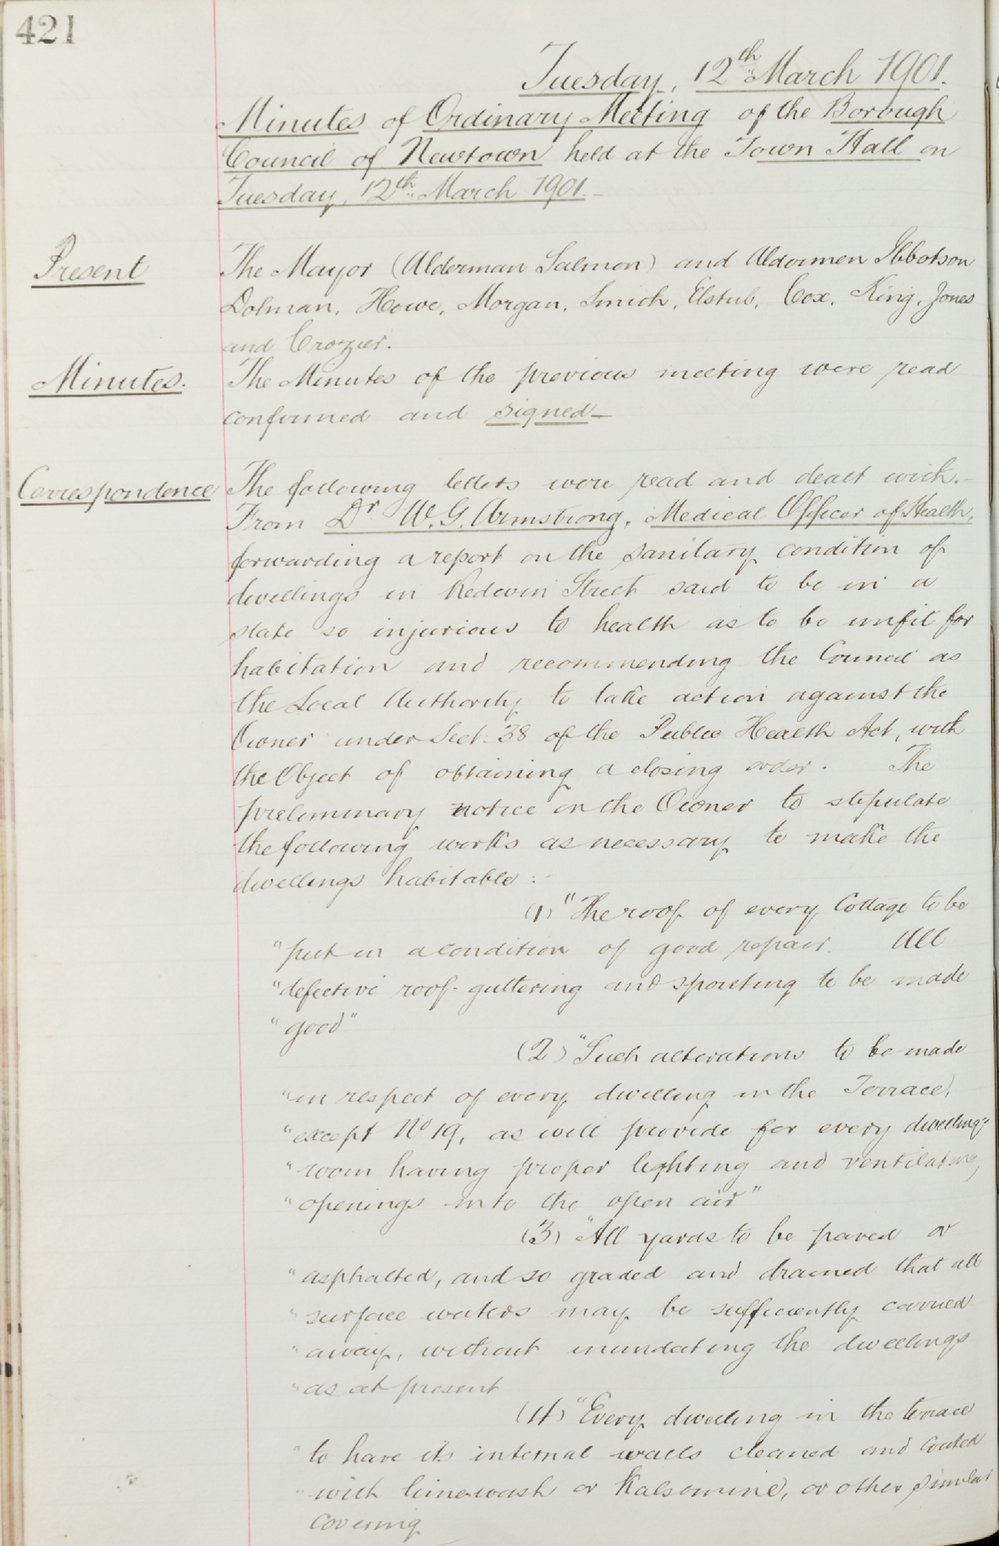 421
Tuesday, 12th March 1901.
Minutes of Ordinary Meeting of the Borough
Council of Newtown held at the Town Hall on
Tuesday, 12th March 1901.
Present The Mayor (Alderman Salmon) and Aldermen Ibbotson
Dolman, Howe, Morgan, Smith, Elstub, Cox, King, Jones
and Crozier.
Minutes. The Minutes of the previous meeting were read
confirmed and signed—
Correspondence The following letters were read and dealt with.—
From Dr W. G. Armstrong, Medical Officer of Health,
forwarding a report on the sanitary condition of
dwellings in Street said to be in a
state so injurious to health as to be unfit for
habitation and recommending the Council as
the Local Authority to take action against the
Owner under Sect. 38 of the Public Health Act, with
the Object of obtaining a closing order. The
preliminary notice on the Owner to stipulate
the following works as necessary to make the
dwellings habitable:—
(1) "The roof of every Cottage to be
"put in a condition of good repair. All
"defective roof-guttering and spouting to be made
"good"
(2) "Such alterations to be made
"in respect of every dwelling in the Terrace,
"except No 19, as will provide for every dwelling-
"room having proper lighting and ventilating
"openings into the open air"
(3) "All yards to be paved or
"asphalted, and so graded and drained that all
"surface waters may be sufficiently carried
"away, without inundating the dwellings
"as at present
(4) "Every dwelling in the terrace
"to have its internal walls cleaned and coated
"with limewash or Kalsomine, or other similar
covering